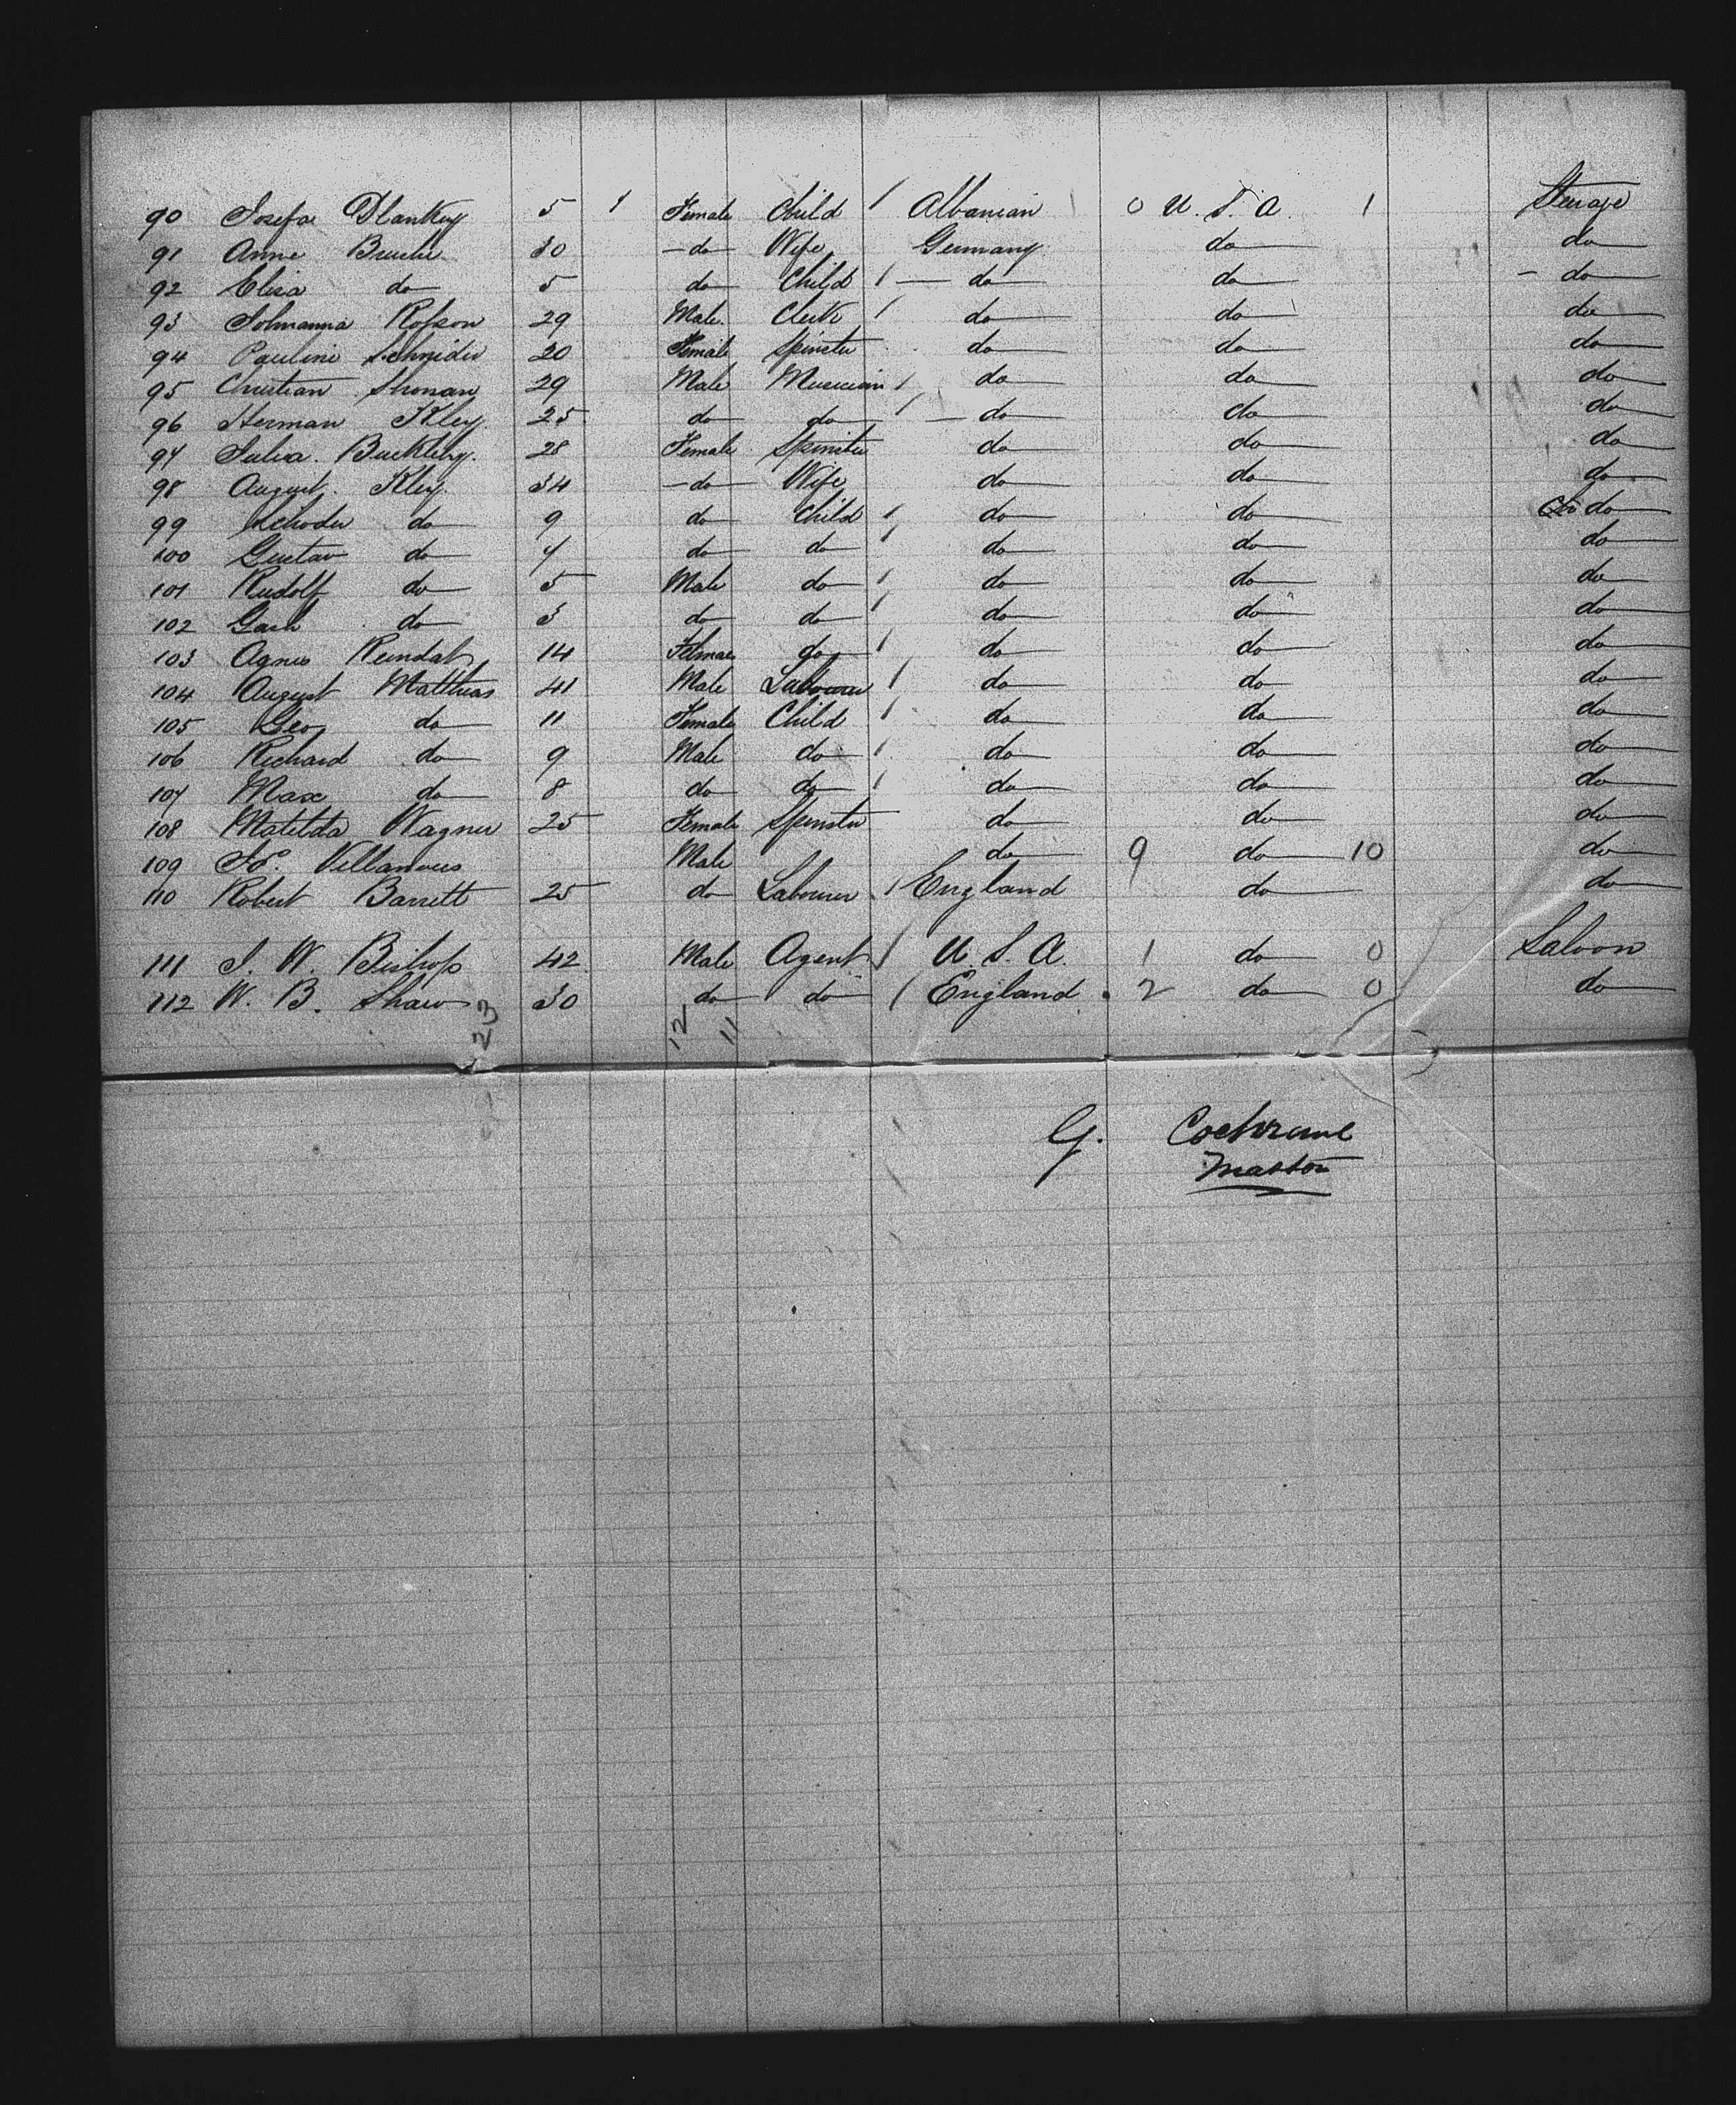 90 Josefa Blankey 5 1 Female Child / Albanian 0 U.S.A. 1 Steerage
91 Anne 30 -do- Wife Germany do do
92 Elisa do 5 do Child / - do do - do
93 29 Male. Clerk / do do do
94 Pauline Schnider 20 Female Spinster do do do
95 Christian 29 Male Musician / do do do
96 Herman Kley 25 do do / - do do do
97 Julia. 28 Female Spinster do do do
98 August. Kley 34 -do- Wife do do do
99 do 9 do Child / do do do
100 Gustav do 7 do do / do do do
101 Rudolf do 5 Male do / do do do
102 do 3 do do / do do do
103 Agnes 14 do / do do do
104 August Matthias 41 Male Labourer / do do do
105 Geo do 11 Female Child / do do do
106 Richard do 9 Male do / do do do
107 Max do 8 do do / do do do
108 Matilda Wagner 25 Female Spinster do do do
109 Male do 9 do 10 do
110 Robert Barrett 25 do Labourer / England do do
111 J. W. Bishop 42 Male Agent / U.S.A. 1 do 0 Saloon
112 W. B. Shaw 30 do do / England. 2 do 0 do
23 12 11
G. Cochrane
Master